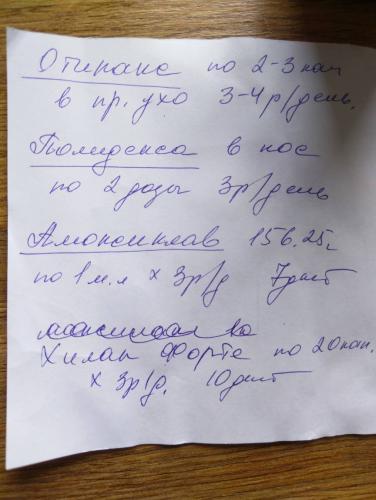 Отипакс по 2-3 кап
в пр. ухо 3-4 р/день.
Полидекса в нос
по 2 дозы 3р/день
Амоксиклав 156.25
по 1 м.л х 3р/д 7 дней
Хилак Форте по 20 кап.
х 3р/д. 10 дней